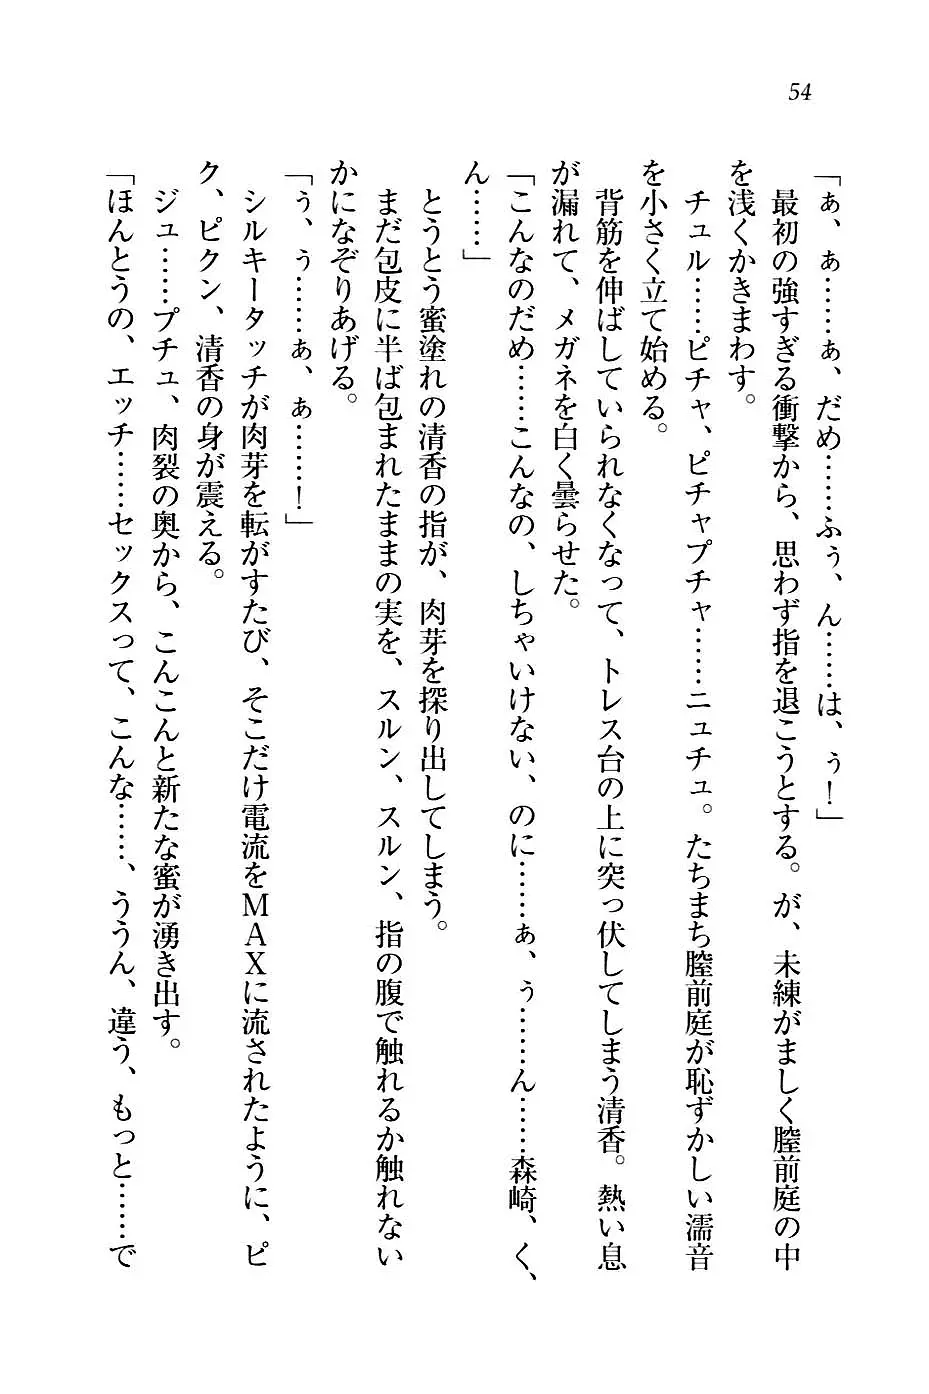 54
「ぁ、ぁ……ぁ、だめ……ふぅ、ん……は、ぅ！」
最初の強すぎる衝撃から、思わず指を退こうとする。が、未練がましく膣前庭の中
を浅くかきまわす。
チュル……ピチャ、ピチャプチャ……ニュチュ。たちまち膣前庭が恥ずかしい濡音
を小さく立て始める。
背筋を伸ばしていられなくなって、トレス台の上に突っ伏してしまう清香。熱い息
が漏れて、メガネを白く曇らせた。
「こんなのだめ……こんなの、しちゃいけない、のに……ぁ、ぅ……ん……森崎、く、
ん……」
とうとう蜜塗れの清香の指が、肉芽を探り出してしまう。
まだ包皮に半ば包まれたままの実を、スルン、スルン、指の腹で触れるか触れない
かになぞりあげる。
「ぅ、ぅ……ぁ、ぁ……！」
シルキータッチが肉芽を転がすたび、そこだけ電流をＭＡＸに流されたように、ピ
ク、ピクン、清香の身が震える。
ジュ……プチュ、肉裂の奥から、こんこんと新たな蜜が湧き出す。
「ほんとうの、エッチ……セックスって、こんな……、ううん、違う、もっと……で